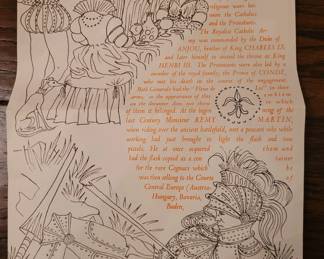 religious wars be-
tween the Catholics
and the Protestants.
The Royalist Catholic Ar-
my was commanded by the Duke of
ANJOU, brother of King CHARLES IX.
and later himself to ascend the throne as King
HENRI III. The Protestants were also led by a
member of the royal family; the Prince of CONDÉ,
who met his death in the course of the engagement.
Both Generals had the "Fleur de Lys" in their
arms, so the appearance of this within
on the decanter does not show to which
of them it belonged. At the beginning
last Century Monsieur REMY MARTIN,
when riding over the ancient battlefield, met a peasant who while
working had just brought to light the flask and two
pistols. He at once acquired them and
had the flask copied as a con tainer
for the rare Cognacs which he
was then selling to the Courts of
Central Europe (Austria-
Hungary, Bavaria,
Baden,